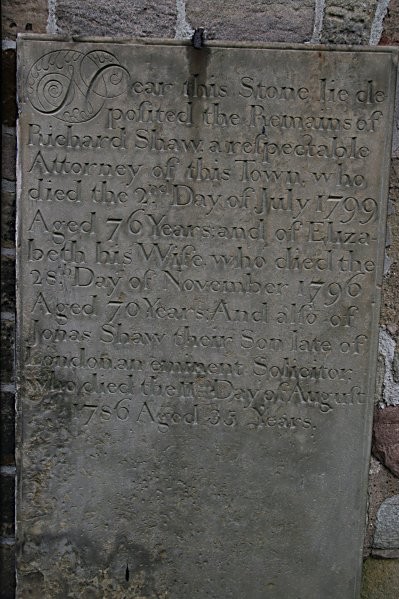 Near this Stone lie de
posited the Remains of
Richard Shaw, a respectable
Attorney of this Town, who
died the 2nd Day of July 1799
Aged 76 Years: and of Eliza-
beth his Wife, who died the
28th Day of November 1796
Aged 70 Years: And also of
Jonas Shaw their Son late of
London, an eminent Solicitor;
who died the 11th Day of August
1786 Aged 35 Years.